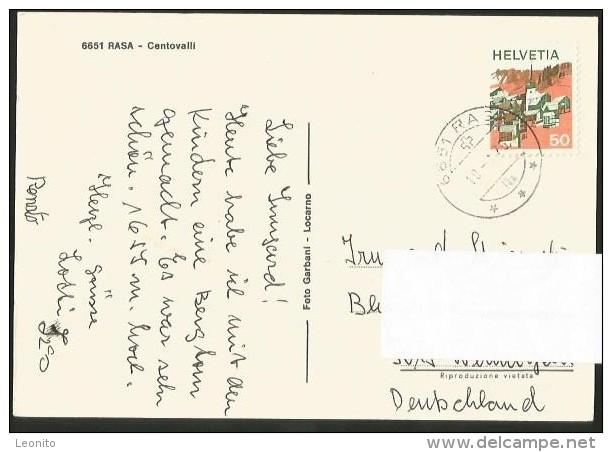 6651 RASA - Centovalli
HELVETIA
50
6651 RASA
Liebe Irmgard!
Heute habe ich mit den
Kindern eine Bergtour
gemacht. Es war sehr
schön. 1655 m. hoch.
Herzl. Grüsse
Lotti
Renato
Foto Garbani - Locarno
Riproduzione vietata
Deutschland
Leonito
delcampe.net